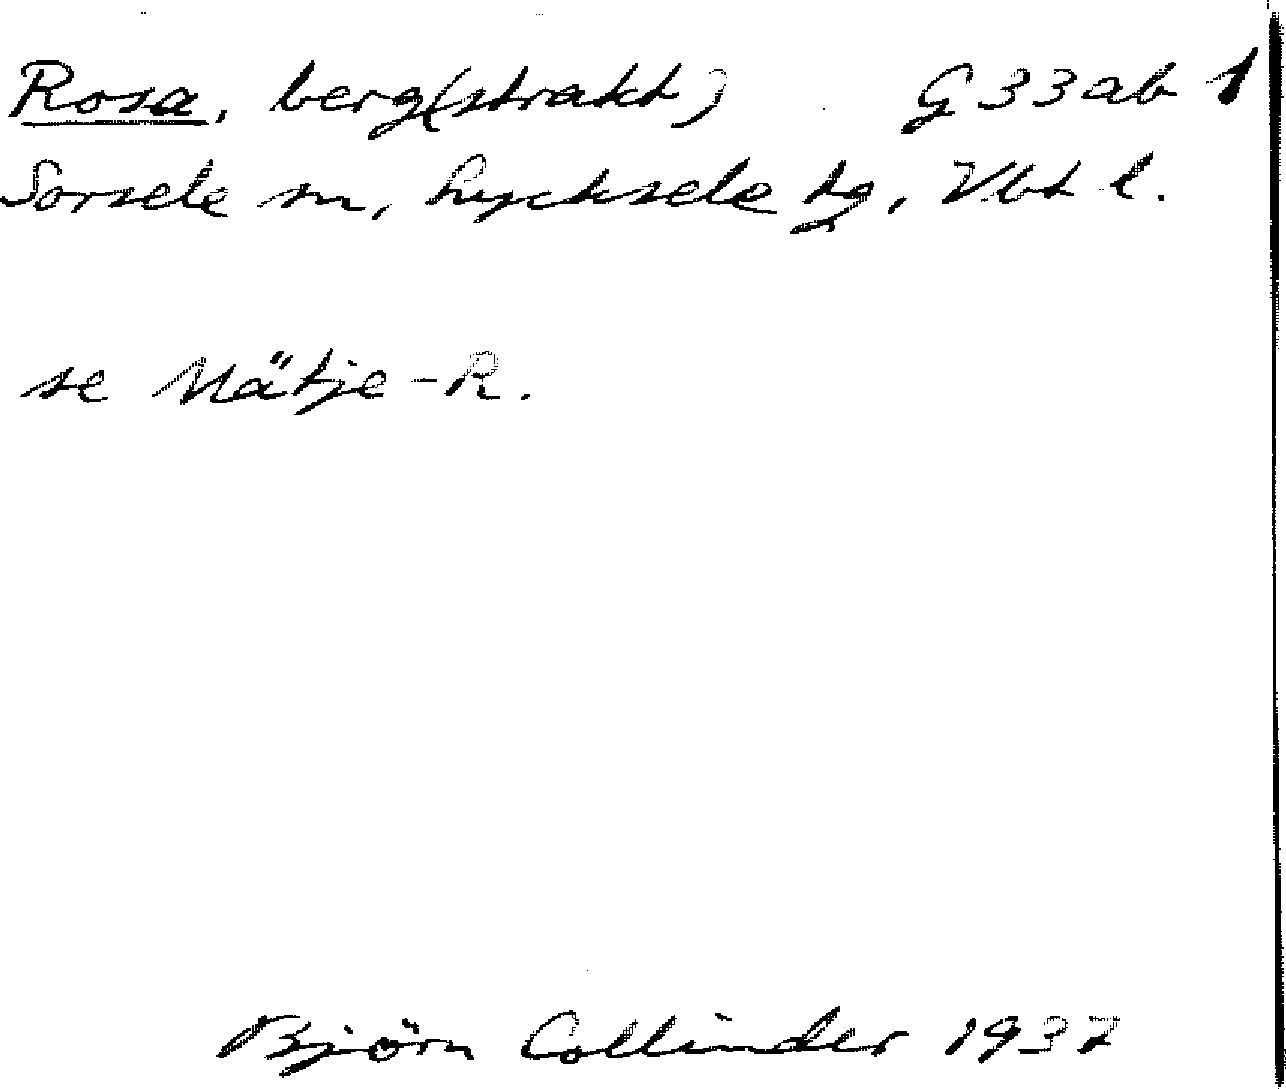 Rosa, berg(strakt) G 33ab 1
Sorsele sn, Lycksele tg, Vbt l.
se Nätje-R.
Björn Collinder 1937